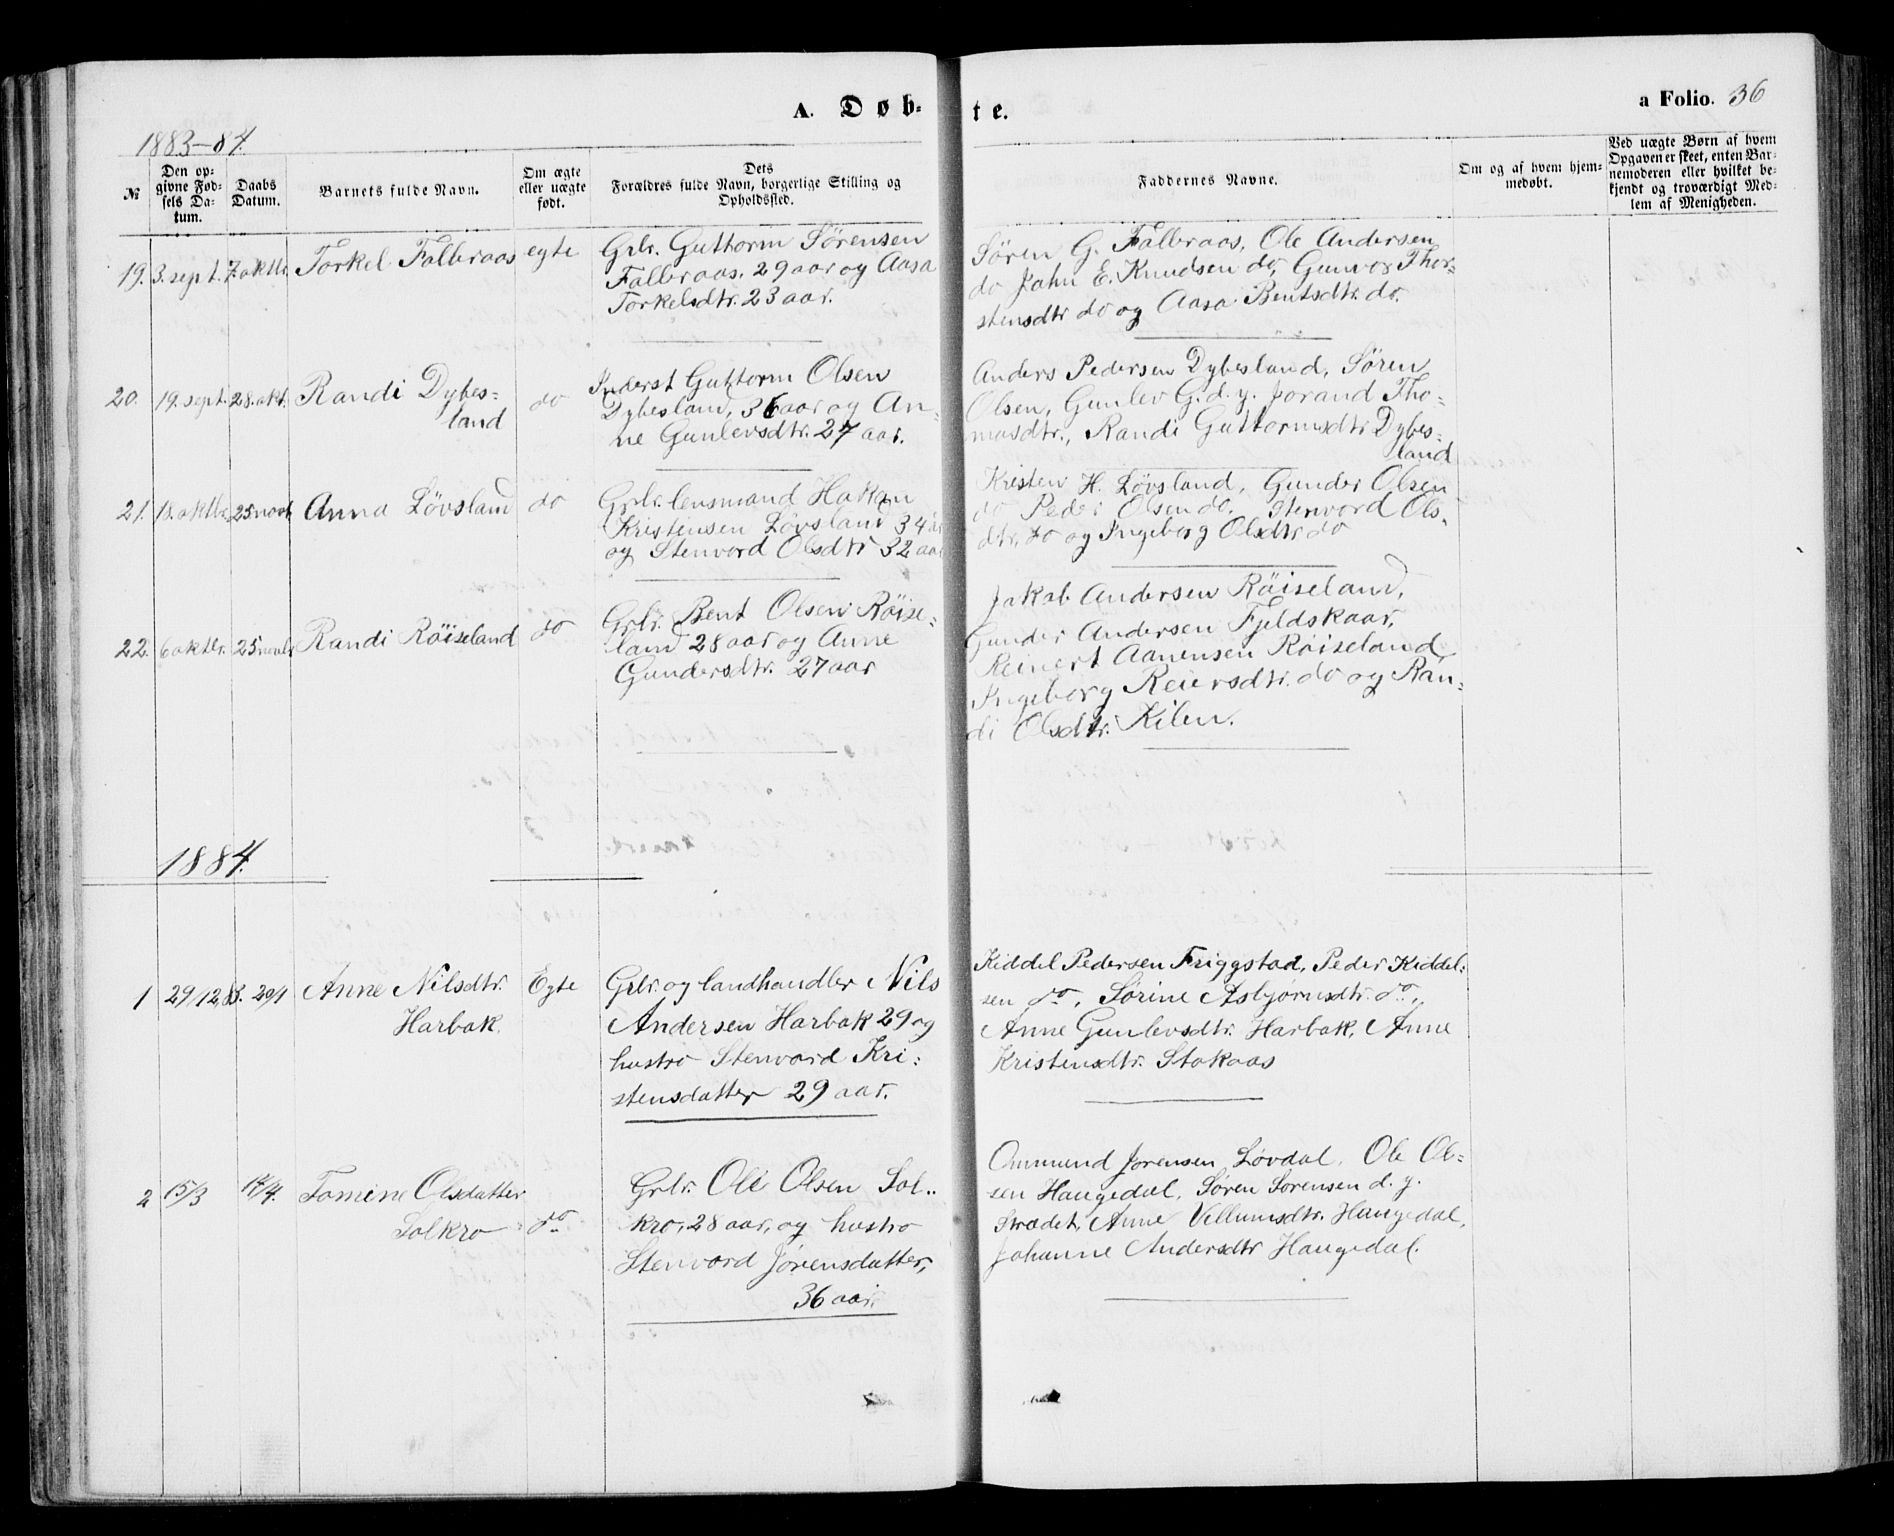 A. Døb- te.
a Folio. 36
1883-84.
№
Den op-
givne Fød-
sels Da-
tum.
Daabs
Datum.
Barnets fulde Navn.
Om ægte
eller uægte
født.
Dets
Forældres fulde Navn, borgerlige Stilling og
Opholdssted.
Faddernes Navne.
Om og af hvem hjem-
medøbt.
Ved uægte Børn af hvem
Opgaven er skeet, enten Bar-
nemoderen eller hvilket be-
kjendt og troværdigt Med-
lem af Menigheden.
19. 3. sept. 7. oktbr. Torkel Falbraas egte
Grbr. Guttorm Sørensen
Falbraas, 29 aar og Aasa
Torkelsdtr. 23 aar.
Søren G. Falbraas, Ole Andersen
do John E. Knudsen do, Gunvor Thor-
stensdtr do og Aasa Bentsdtr. do.
20. 19. sept. 28. okt. Randi Dybes-
land
do
Inderst Guttorm Olsen
Dybesland, 36 aar og An-
ne Gunlevsdtr. 27 aar.
Anders Pedersen Dybesland, Søren
Olsen, Gunlev G. d. y. Jorand Tho-
masdtr., Randi Guttormsdtr Dybes-
land
21. 18. oktbr. 25 novb. Anna Løvsland do
Grbr. lensmand Hakon
Kristensen Løvsland 34 aar
og Stenvord Olsdtr 32 aar
Kristen H. Løvsland, Gunder Olsen
do Peder Olsen do. Stenvord Ols-
dtr. do og Ingeborg Olsdtr do
22. 6 oktbr. 25 novbr Randi Röiseland do
Grbr. Bent Olsen Röise-
land 28 aar og Anne
Gundersdtr. 27 aar
Jakob Andersen Röiseland,
Gunder Andersen Fjeldskaar,
Reinert Aanensen Röiseland
Ingeborg Reiersdtr. do og Ran-
di Olsdtr. Kilen.
1884.
1 29/12 83. 20/1 Anne Nilsdtr.
Harbak.
Egte
Grbr. og landhandler Nils
Andersen Harbak 29 og
hustro Stenvord Kri-
stensdatter 29 aar.
Kiddel Pedersen Friggstad, Peder Kiddel-
sen do, Sørine Asbjørnsdtr. do,
Anne Gunlevsdtr. Harbak, Anne
Kristensdtr. Stokaas
2 15/3 14/4. Tomine Olsdatter
Solkro do
Grbr. Ole Olsen Sol-
kro, 28 aar, og hustro
Stenvord Jørensdatter,
36 aar.
Ommund Jorensen Løvdal, Ole Ol-
sen Haugedal, Søren Sorensen d. y.
Strædet, Anne Villumsdtr. Haugedal,
Johanne Andersdtr Haugedal.